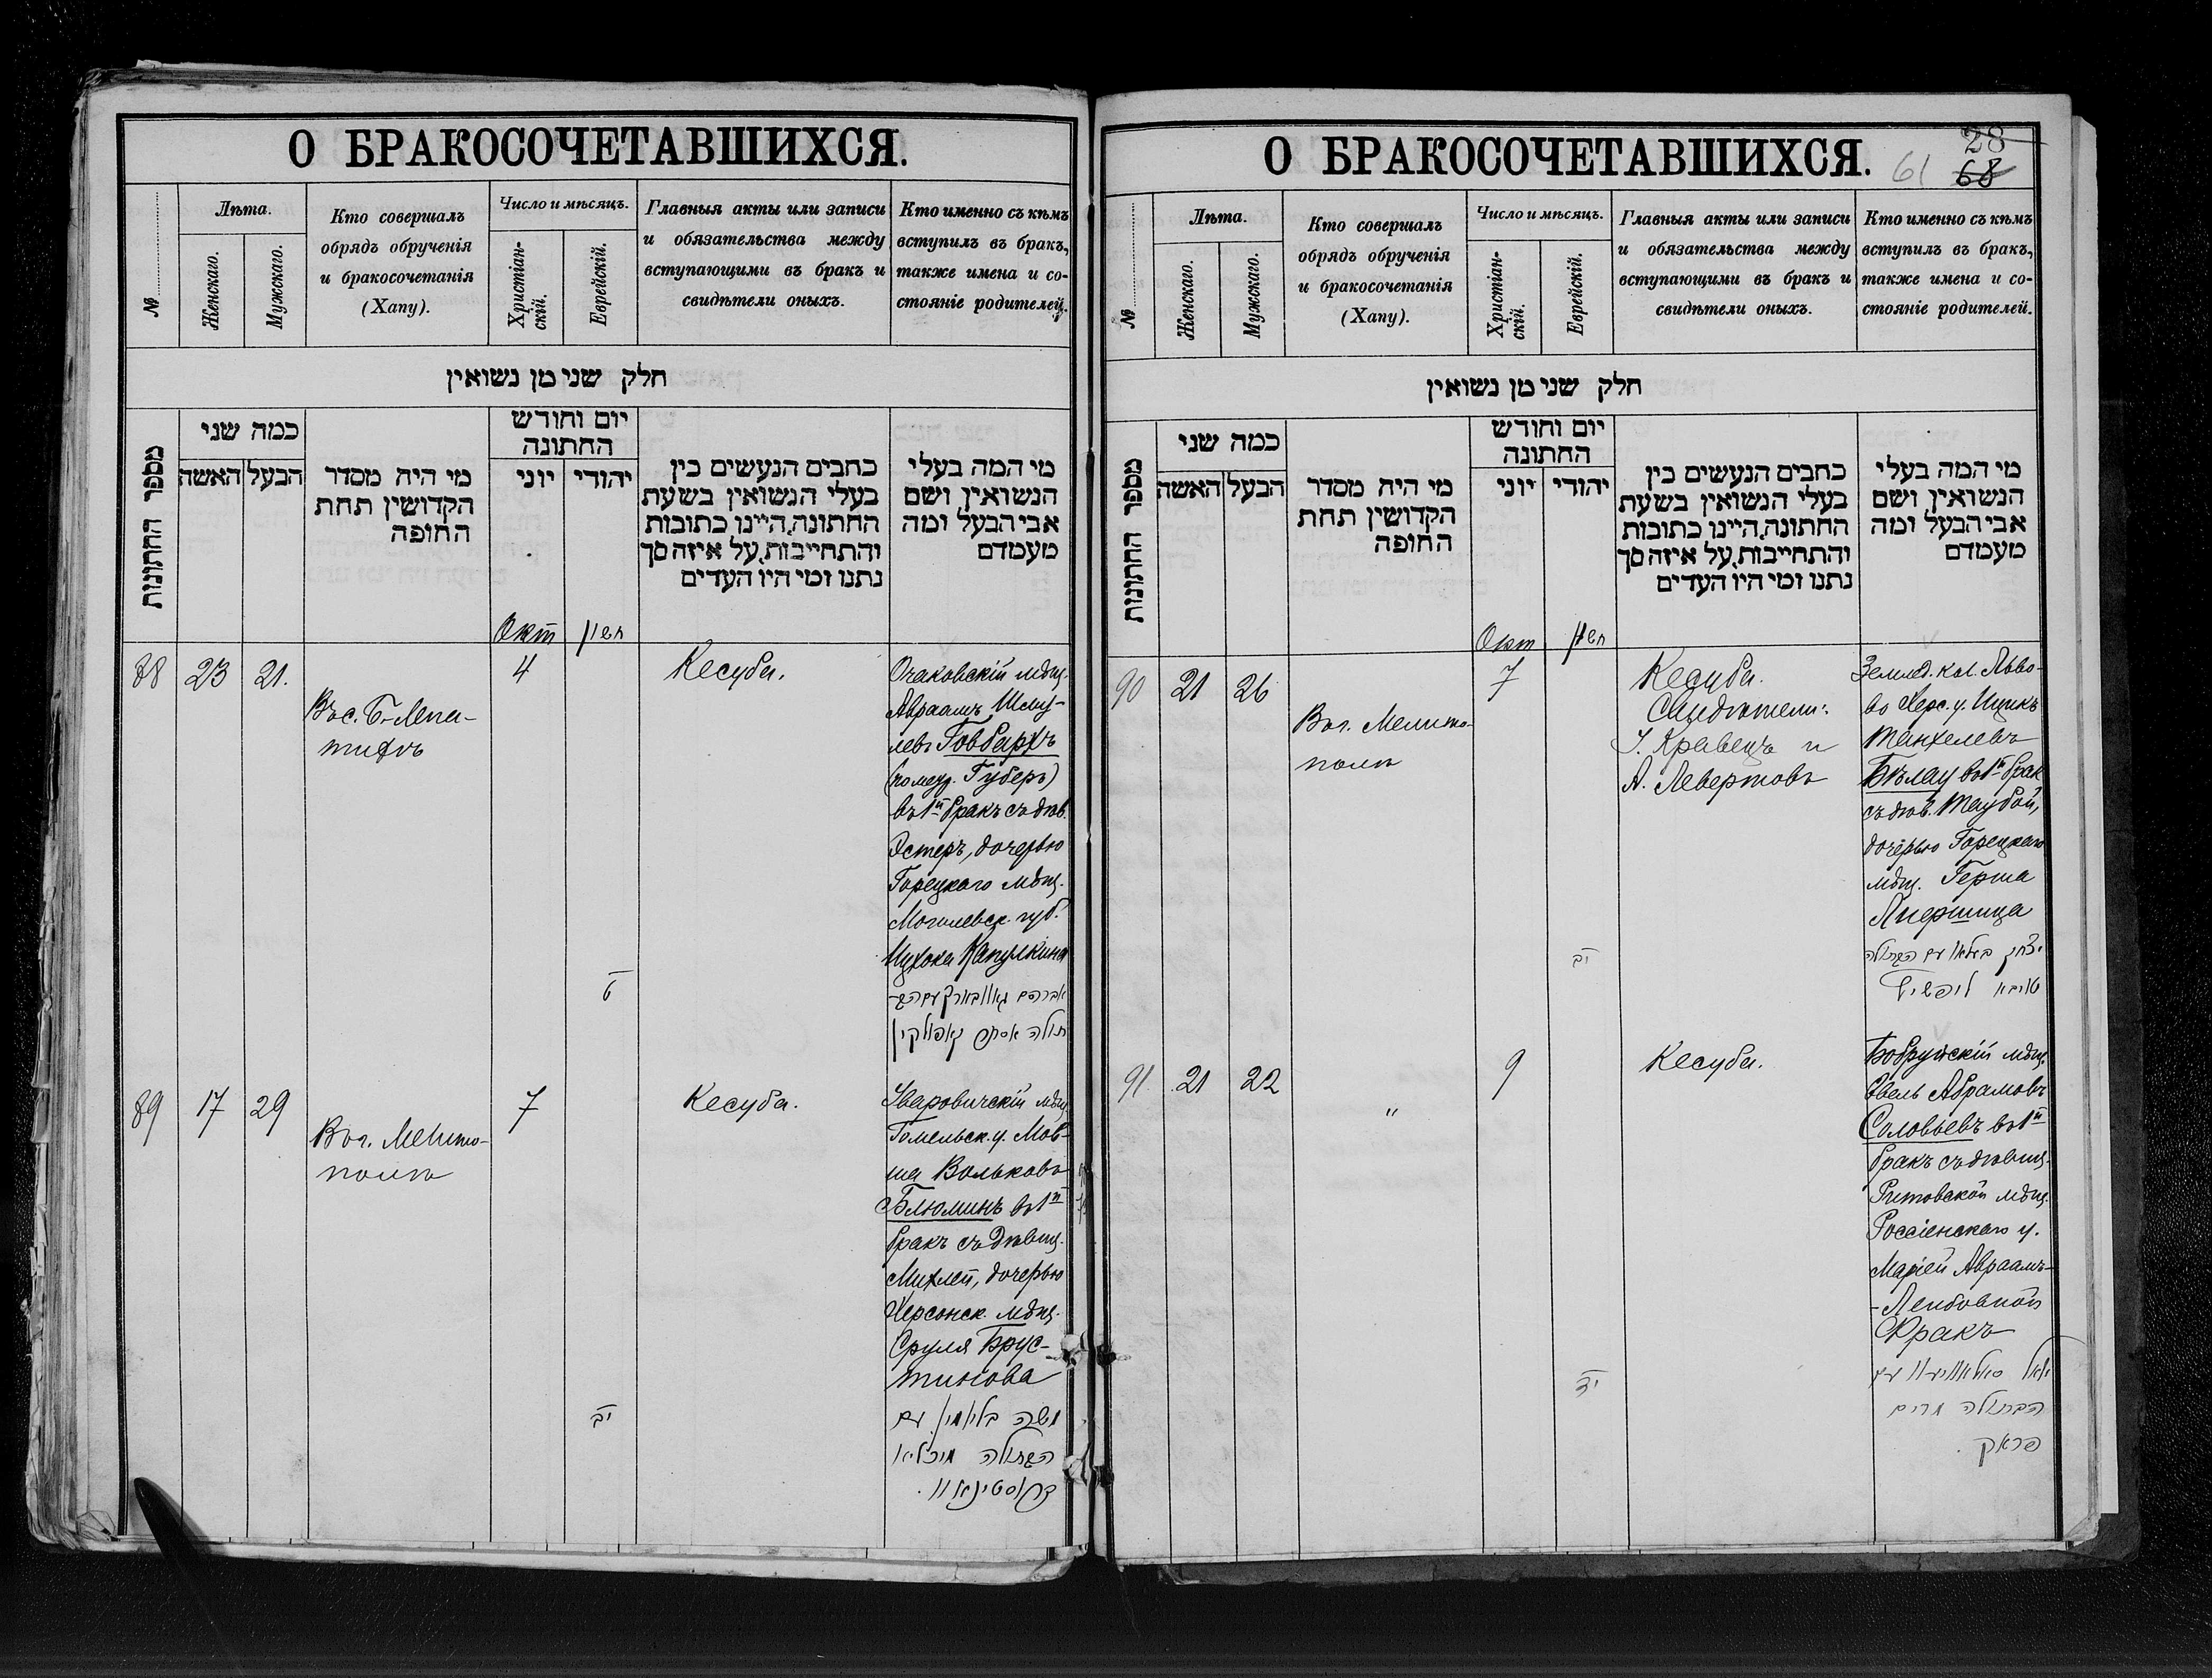 О БРАКОСОЧЕТАВШИХСЯ.
№
Лѣта.
Женскаго.
Мужскаго.
Кто совершалъ
обрядъ обрученія
и бракосочетанія
(Хапу).
Число и мѣсяцъ.
Христіан-
скій.
Еврейскій.
Главныя акты или записи
и обязательства между
вступающими въ бракъ и
свидѣтели оныхъ.
Кто именно съ кѣмъ
вступилъ въ бракъ,
также имена и со-
стояніе родителей.
חלק שני מן נשואין
מספר החתונות
כמה שני
האשה
הבעל
מי היה מסדר
הקדושין תחת
החופה
יום וחודש
החתונה
יוני
יהודי
כתבים הנעשים בין
בעלי הנשואין בשעת
החתונה, היינו כתובות
והתחייבות, על איזה סך
נתנו ומי היו העדים
מי המה בעלי
הנשואין ושם
אבי הבעל ומה
מעמדם
Окт
חשון
88
23
21.
4
Кесуба.
Очаковскій мѣщ.
Авраамъ Шму-
левъ Говбархъ
Губеръ)
въ 1й бракъ съ дѣв.
Эстеръ, дочерью
Горецкаго мѣщ.
Могилевск. губ.
Ицхока Капулкина
ט
אברהם גאוובארק עם הב-
תולה אסתר קאפולקין
89
17
29
Ваг. Мелито-
поль
7
Кесуба.
Уваровичскій мѣщ.
Гомельск. у. Мов-
ша Вольковъ
Блюминъ въ 1й
бракъ съ дѣвиц.
Михлей, дочерью
Херсонск. мѣщ.
Сруля Брус-
тинова
יב
משה בליומין עם
הבתולה מיכליא
ברוסטינאוו.
О БРАКОСОЧЕТАВШИХСЯ.
28
61 68
№
Лѣта.
Женскаго.
Мужскаго.
Кто совершалъ
обрядъ обрученія
и бракосочетанія
(Хапу).
Число и мѣсяцъ.
Христіан-
скій.
Еврейскій.
Главныя акты или записи
и обязательства между
вступающими въ бракъ и
свидѣтели оныхъ.
Кто именно съ кѣмъ
вступилъ въ бракъ,
также имена и со-
стояніе родителей.
חלק שני מן נשואין
מספר החתונות
כמה שני
האשה
הבעל
מי היה מסדר
הקדושין תחת
החופה
יום וחודש
החתונה
יוני
יהודי
כתבים הנעשים בין
בעלי הנשואין בשעת
החתונה, היינו כתובות
והתחייבות, על איזה סך
נתנו ומי היו העדים
מי המה בעלי
הנשואין ושם
אבי הבעל ומה
מעמדם
Окт
חשון
90
21
26
Ваг. Мелито-
поль
7
Кесуба.
Свидѣтели:
Кравецъ и
А. Левертовъ
Землед. кол. Льво-
во Херс. у. Ицикъ
Танхелевъ
Бѣлау въ 1й брак
съ дѣв. Таубой,
дочерью Горецкаго
мѣщ. Герша
יב
יצחק בעלאו עם הבתולה
טויבא ליפשיץ
91
21
22
"
9
Кесуба.
Бобруйскій мѣщ.
Евель Абрамовъ
Соловьевъ въ 1й
бракъ съ дѣвиц.
Ритовской мѣщ.
Россіенскаго у.
Маріей Авраамъ-
-Лейбовной
Фракъ
יד
יואל סאלאוויעוו עם
הבתולה מרים
פראק.